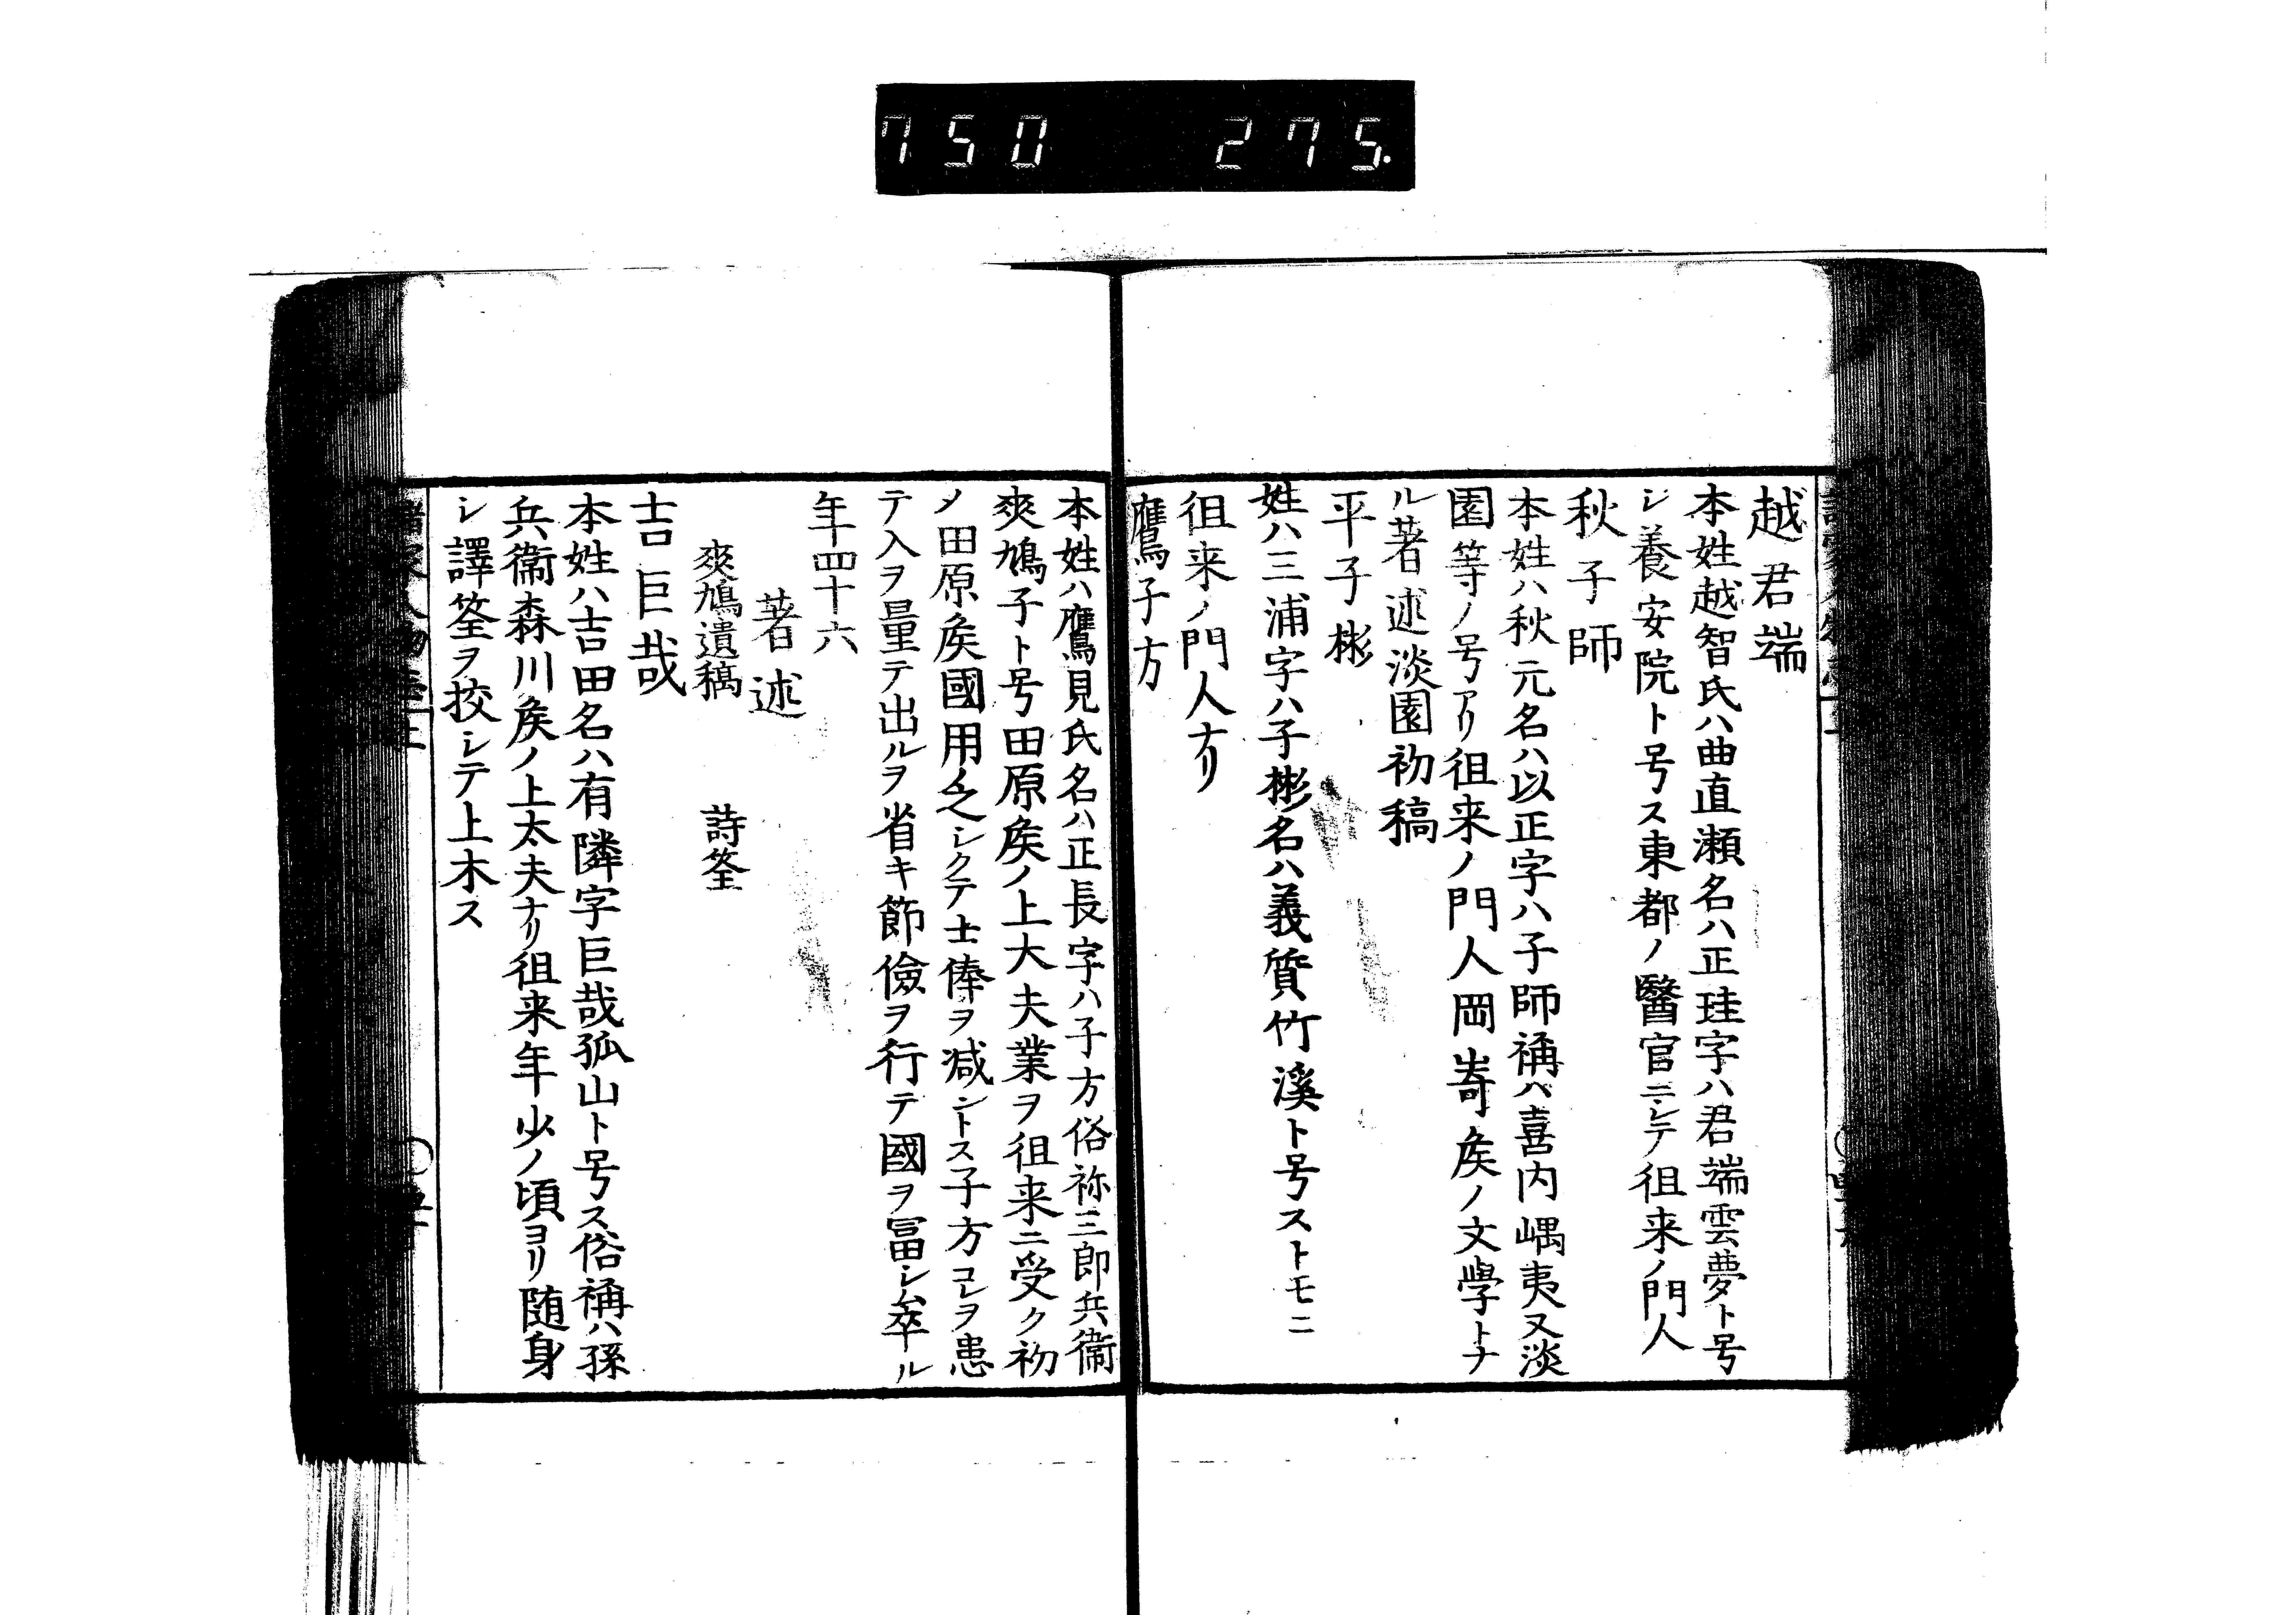 750 275.
越君端
本姓越智氏ハ曲直瀬名ハ正珪字ハ君端雲夢ト号
シ養安院ト号ス東都ノ醫官ニシテ徂来ノ門人
秋子師
本姓ハ秋元名ハ以正字ハ子師稱ハ喜内嵎夷又淡
園等ノ号アリ徂来ノ門人岡嵜矦ノ文學トナ
ル著述淡園初稿
平子彬
姓ハ三浦字ハ子彬名ハ義質竹溪ト号ストモニ
徂来ノ門人ナリ
鷹子方
本姓ハ鷹見氏名ハ正長字ハ子方俗祢三郎兵衞
爽鳩子ト号田原矦ノ上大夫業ヲ徂来ニ受ク初
メ田原矦國用乏シクテ士俸ヲ减ントス子方コレヲ患
テ入ヲ量テ出ルヲ省キ節儉ヲ行テ國ヲ冨シム卒ル
年四十六
著述
爽鳩遺稿 詩筌
吉巨哉
本姓ハ吉田名ハ有隣字巨哉孤山ト号ス俗稱ハ孫
兵衞森川矦ノ上太夫ナリ徂来年少ノ頃ヨリ随身
シ譯筌ヲ挍シテ上木ス